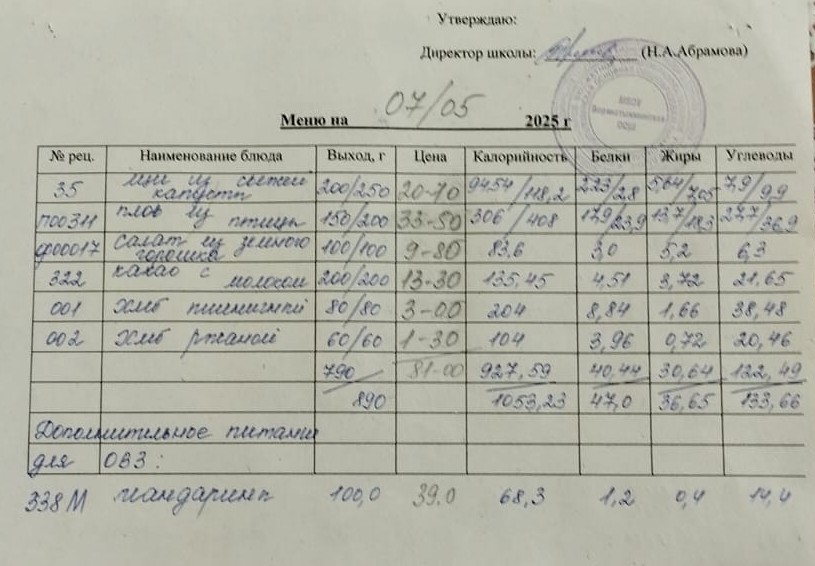 Утверждаю:
Директор школы: (Н.А.Абрамова)
Меню на 07/05 2025 г
№ рец. Наименование блюда Выход, г Цена Калорийность Белки Жиры Углеводы
35 щи из свежей капусты 200/250 20-10 9454/118,2 2,23/2,8 5,64/7,05 7,9/9,9
п00311 плов из птицы 150/200 33-50 306/408 17,9/23,9 13,7/18,3 27,7/36,9
ф00017 салат из зеленого горошка 100/100 9-80 83,6 3,0 5,2 6,3
322 какао с молоком 200/200 13-30 135,45 4,51 3,72 21,65
001 хлеб пшеничный 80/80 3-00 204 8,84 1,66 38,48
002 хлеб ржаной 60/60 1-30 104 3,96 0,72 20,46
790 81-00 927,59 40,44 30,64 122,49
890 1053,23 47,0 36,65 133,66
Дополнительное питание
для ОВЗ:
338М мандарины 100,0 39.0 68,3 1,2 0,4 14,4